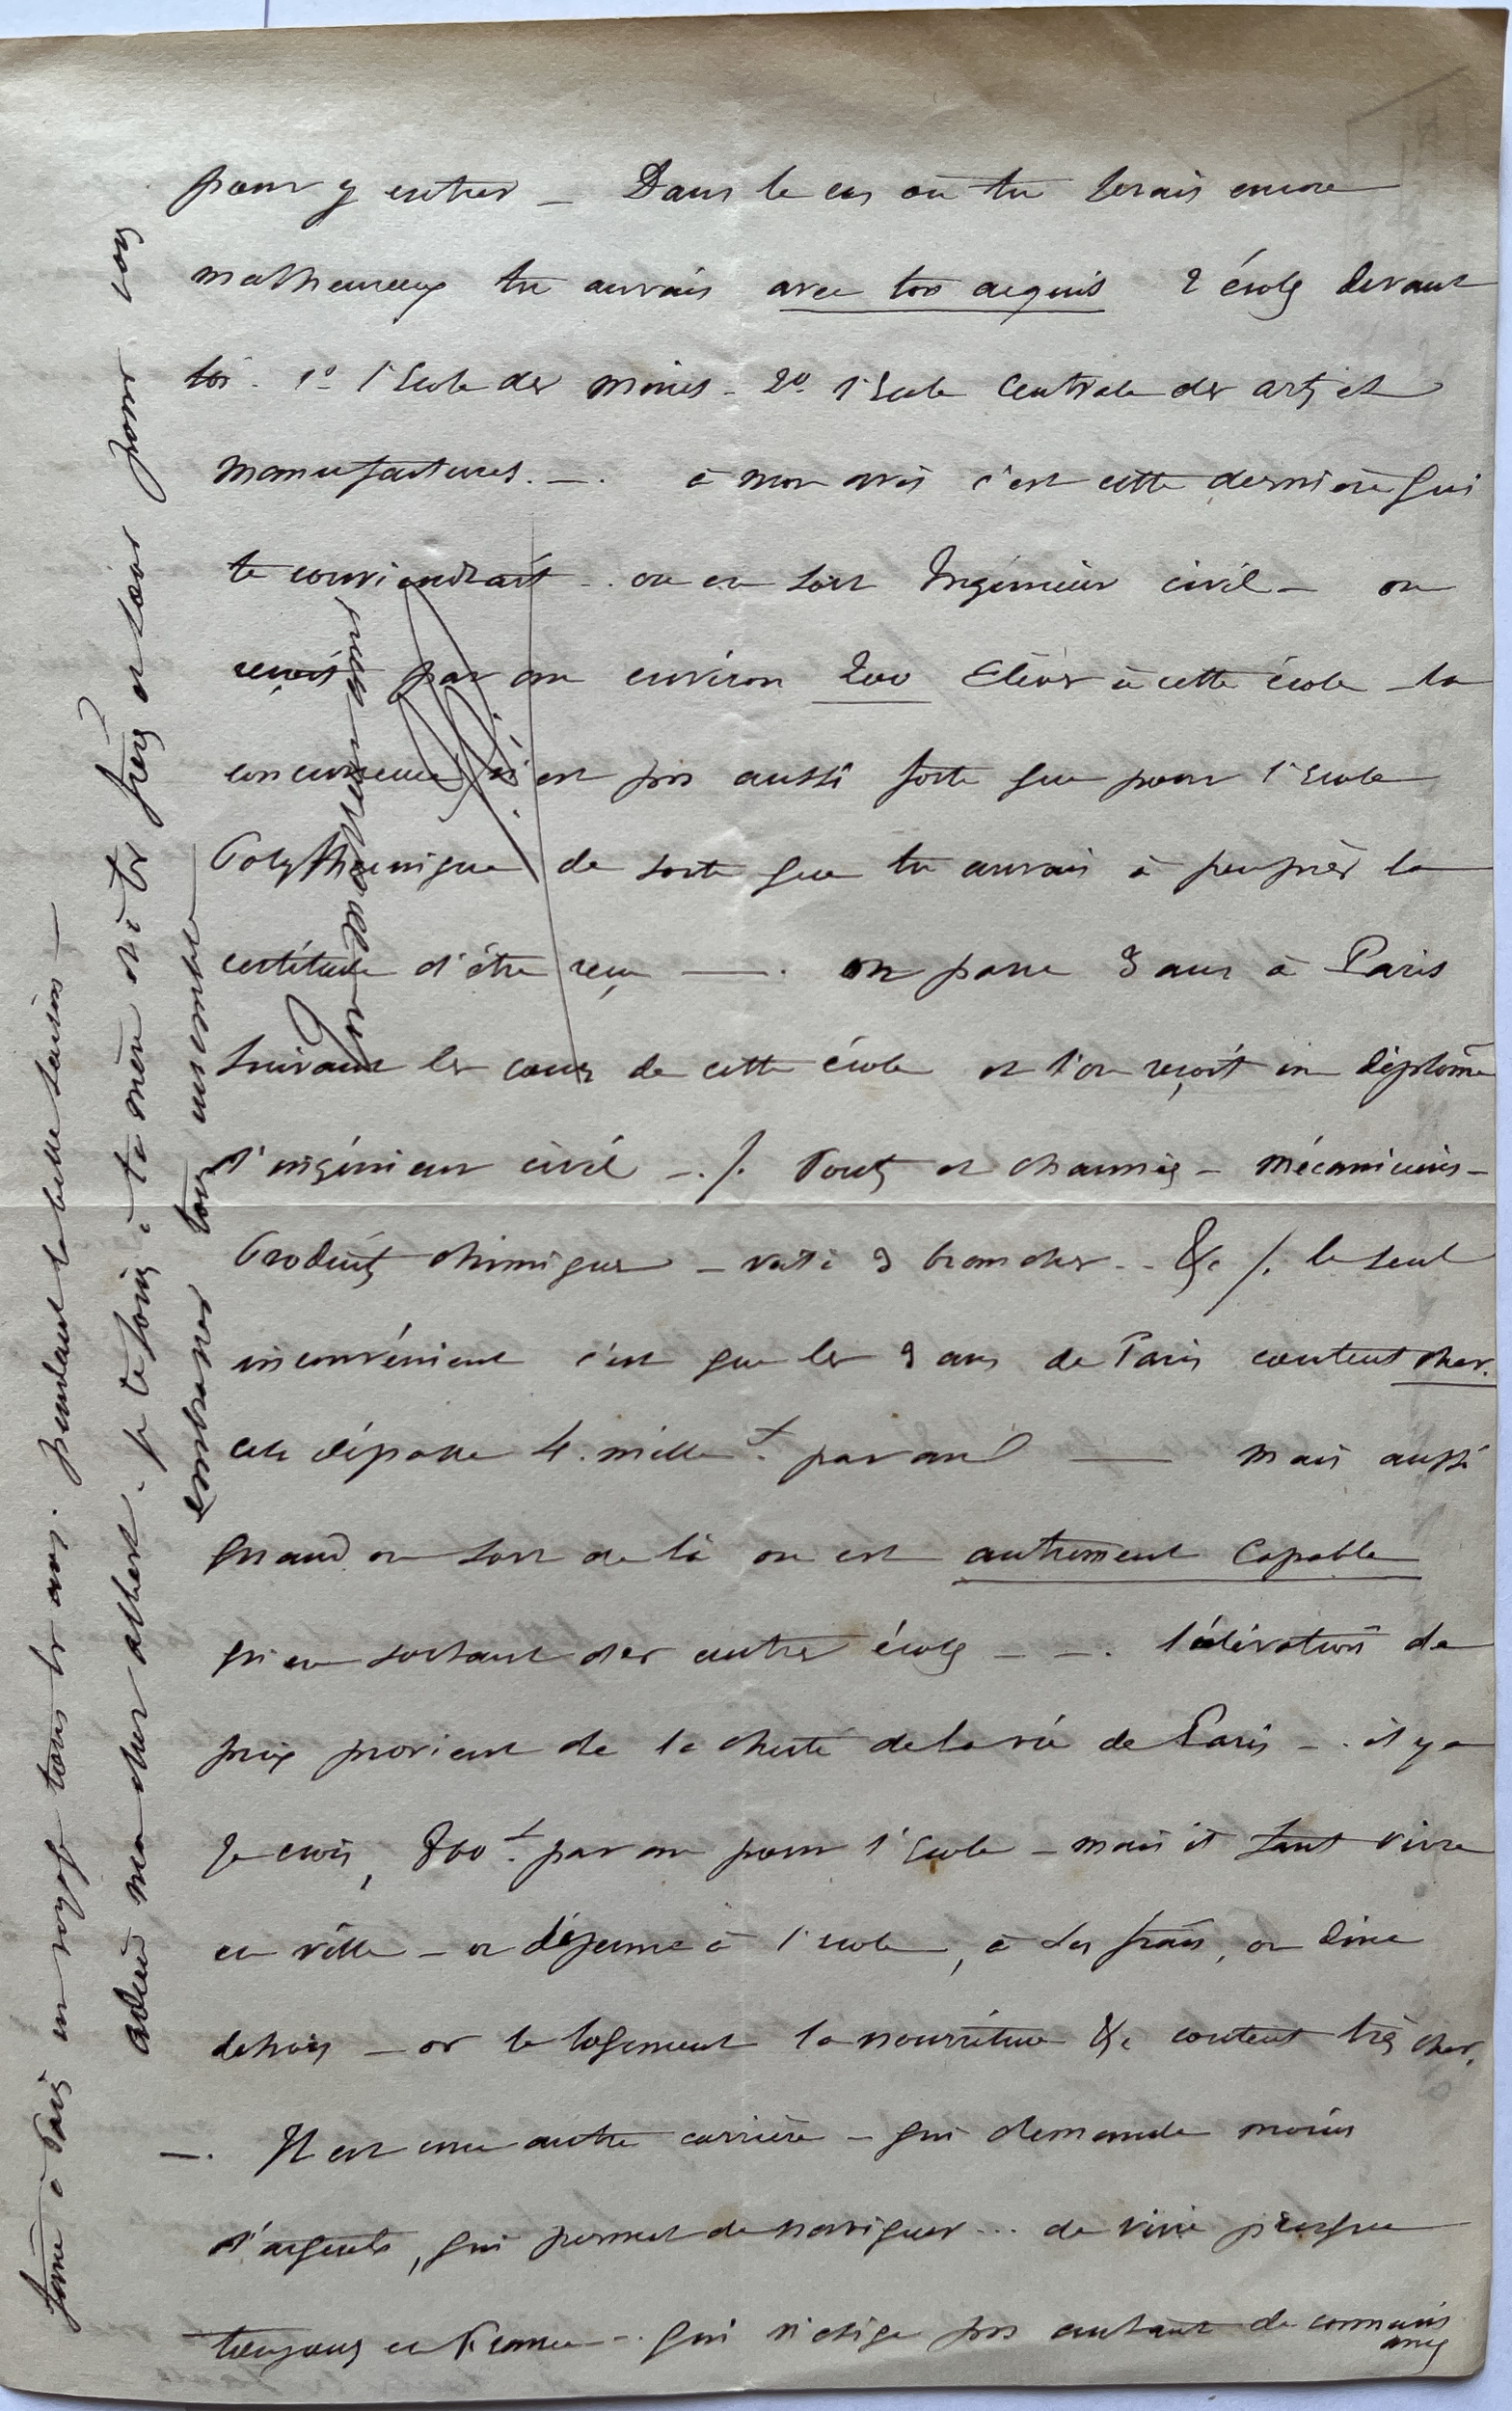 pour y entrer — Dans le cas où tu serais encore
malheureux tu aurais avec ton acquis 2 écoles devant
toi. 1º l'Ecole des mines — 2º l'Ecole Centrale des arts et
manufactures. —. à mon avis c'est cette dernière qui
te conviendrait -. on en sort Ingénieur civil — on
reçoit par an environ 200 Elèves à cette école — la
concurrence n'est pas aussi forte que pour l'Ecole
Polythecnique de sorte que tu aurais à peu près la
certitude d'être reçu —. on passe 3 ans à Paris
suivant les cours de cette école et l'on reçoit un diplôme
d'ingénieur civil —./. Ponts et chaussées — mécaniciens —
Produits chimiques — voilà 3 branches -. &c /. le seul
inconvénient c'est que les 3 ans de Paris coutent cher.
cela dépasse 4. mille f. par an — mais aussi
quand on sort de là on est autrement capable
qu'en sortant des autres écoles — —. l'élévation de
prix provient de la cherté de la vie de Paris —. il y a
je crois, 800 f. par an pour l'Ecole — mais il faut vivre
en ville — on déjeune à l'école, à ses frais, on dine
dehors — or le logement la nourriture &c coutent très cher.
—. Il est une autre carrière — qui demande moins
d'argent, qui permet de naviguer... de vivre presque
toujours en France -. qui n'exige pas autant de connaiss
ances
à Paris en voyage tous les ans. pendant la belle saison —
adieu mon cher albert. je te joins à ta mère et à tes frères et sœur pour vous
embrasser tous ensemble